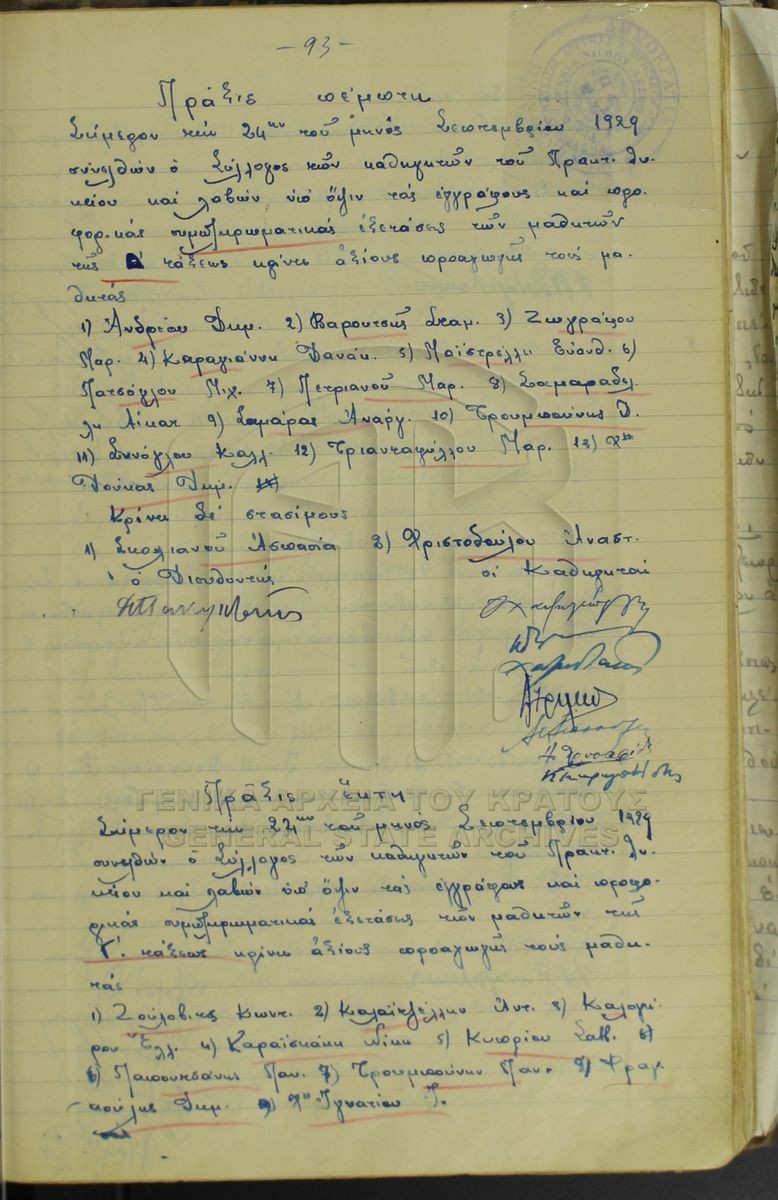 - 93 -
Πρᾶξις πέμπτη
Σήμερον τὴν 24ην τοῦ μηνὸς Σεπτεμβρίου 1929
συνελθὼν ὁ Σύλλογος τῶν καθηγητῶν τοῦ Πρακτ. Λυ-
κείου καὶ λαβὼν ὑπ' ὄψιν τὰς ἐγγράφους καὶ προ-
φορικὰς συμπληρωματικὰς ἐξετάσεις τῶν μαθητῶν
τῆς τάξεως κρίνει ἀξίους προαγωγῆς τοὺς μα-
θητάς
1) Ἀνδρέου Δημ. 2) Βαρουτσῆς Σταμ. 3) Ζωγράφου
Μαρ. 4) Καραγιάννη Δανάη. 5) Μαϊστρέλλη Εὐανθ. 6)
Πατσόγλου Μιχ. 7) Πετριανοῦ Μαρ. 8) Σαμαραδέλ-
λη Αἰκατ. 9) Σαμάρας Ἀναργ. 10) Τρουμπούνης Δ.
11) Σινόγλου Καλλ. 12) Τριανταφύλλου Μαρ. 13) Χ"
Δούκας Δημ.
Κρίνει δὲ στασίμους
1) Σκολιανοῦ Ἀσπασία 2) Χριστοδούλου Ἀναστ.
ὁ Διευθυντὴς οἱ Καθηγηταί
ΓΕΝΙΚΑ ΑΡΧΕΙΑ ΤΟΥ ΚΡΑΤΟΥΣ
GENERAL STATE ARCHIVES
Πρᾶξις ἕκτη
Σήμερον τὴν 24ην τοῦ μηνὸς Σεπτεμβρίου 1929
συνελθὼν ὁ Σύλλογος τῶν καθηγητῶν τοῦ Πρακτ. Λυ-
κείου καὶ λαβὼν ὑπ' ὄψιν τὰς ἐγγράφους καὶ προφο-
ρικὰς συμπληρωματικὰς ἐξετάσεις τῶν μαθητῶν τῆς
Γ΄. τάξεως κρίνει ἀξίους προαγωγῆς τοὺς μαθη-
τάς
1) Ζούλοβιτς Κωντ. 2) Καλαϊτζέλλην Ἀντ. 3) Καλογή-
ρου Ἑλλ. 4) Καραϊσκάκη Νίκη 5) Κυπρίου Σαβ. 6)
Παπουτσάνης Παν. 7) Τρουμπούνην Παν. 8) Φραγ-
κούλης Δημ. 9) Χ" Ἰγνατίου Γ.